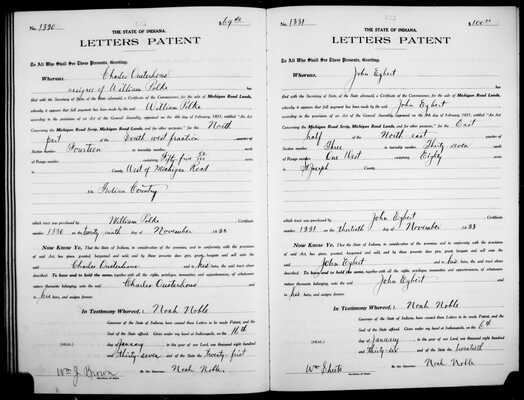 No. 1330 $69 40
THE STATE OF INDIANA.
LETTERS PATENT
To All Who Shall See These Presents, Greeting:
WHEREAS, Charles Ousterhous
assignee of William Polke has
filed with the Secretary of State of the State aforesaid, a Certificate of the Commissioner, for the sale of Michigan Road Lands,
whereby it appears that full payment has been made by the said William Polke
according to the provisions of an Act of the General Assembly, approved of the 4th of February, 1831, entitled "An Act
Concerning the Michigan Road Scrip, Michigan Road Lands, and for other purposes," for the North
part South west fraction quarter of
Section number Fourteen in township number
of Range number containing Fifty five
in County, West of Michigan Road
in Indian Country
which tract was purchased by William Polke Certificate
number 1330 on the twenty ninth day of November 1833
NOW KNOW YE, That the State of Indiana, in consideration of the premises, and in conformity with the provisions
of said Act, has given, granted, bargained and sold, and by these presents does give, grant, bargain and sell unto the
said Charles Ousterhous and to his heirs, the said tract above
described. To have and to hold the same, together with all the rights, privileges, immunities and appurtenances, of whatsoever
nature thereunto belonging, unto the said Charles Ousterhous and
to his heirs, and assigns forever.
IN TESTIMONY WHEREOF, I Noah Noble
Governor of the State of Indiana, have caused these Letters to be made Patent, and the
Seal of the State affixed. Given under my hand at Indianapolis, on the 11th
(SEAL) day of January in the year of our Lord, one thousand eight hundred
and thirty-seven and of the State the Twenty-first
By the Governor: Noah Noble
Wm J. Brown
Secretary of State
No. 1331 $100
THE STATE OF INDIANA.
LETTERS PATENT
To All Who Shall See These Presents, Greeting:
WHEREAS, John Egbert
has
filed with the Secretary of State of the State aforesaid, a Certificate of the Commissioner, for the sale of Michigan Road Lands,
whereby it appears that full payment has been made by the said John Egbert
according to the provisions of an Act of the General Assembly, approved of the 4th of February, 1831, entitled "An Act
Concerning the Michigan Road Scrip, Michigan Road Lands, and for other purposes," for the East
half of the North east quarter of
Section number Three in township number Thirty seven
of Range number One West containing Eighty
in St Joseph County,
which tract was purchased by John Egbert Certificate
number 1331 on the thirtieth day of November 1833
NOW KNOW YE, That the State of Indiana, in consideration of the premises, and in conformity with the provisions
of said Act, has given, granted, bargained and sold, and by these presents does give, grant, bargain and sell unto the
said John Egbert and to his heirs, the said tract above
described. To have and to hold the same, together with all the rights, privileges, immunities and appurtenances, of whatsoever
nature thereunto belonging, unto the said John Egbert and
to his heirs, and assigns forever.
IN TESTIMONY WHEREOF, I Noah Noble
Governor of the State of Indiana, have caused these Letters to be made Patent, and the
Seal of the State affixed. Given under my hand at Indianapolis, on the 6th
(SEAL) day of January in the year of our Lord, one thousand eight hundred
and thirty-six and of the State the twentieth
By the Governor: Noah Noble
Wm Sheets
Secretary of State